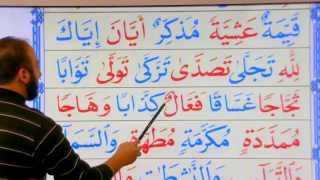 قَيِّمَةٌ عَشِيَّةَ مُذَكِّرٌ أَيَّانَ إِيَّاكَ
لِلّٰهِ تَجَلّٰى تَصَدّٰى تَزَكّٰى تَوَلّٰى تَوَّابًا
ثَجَّاجًا غَسَّاقًا فَعَّالٌ كِذَّابًا وَهَّاجًا
مُمَدَّدَةٍ مُكَرَّمَةٍ مُطَهَّرَةٍ وَالسَّمَاءِ